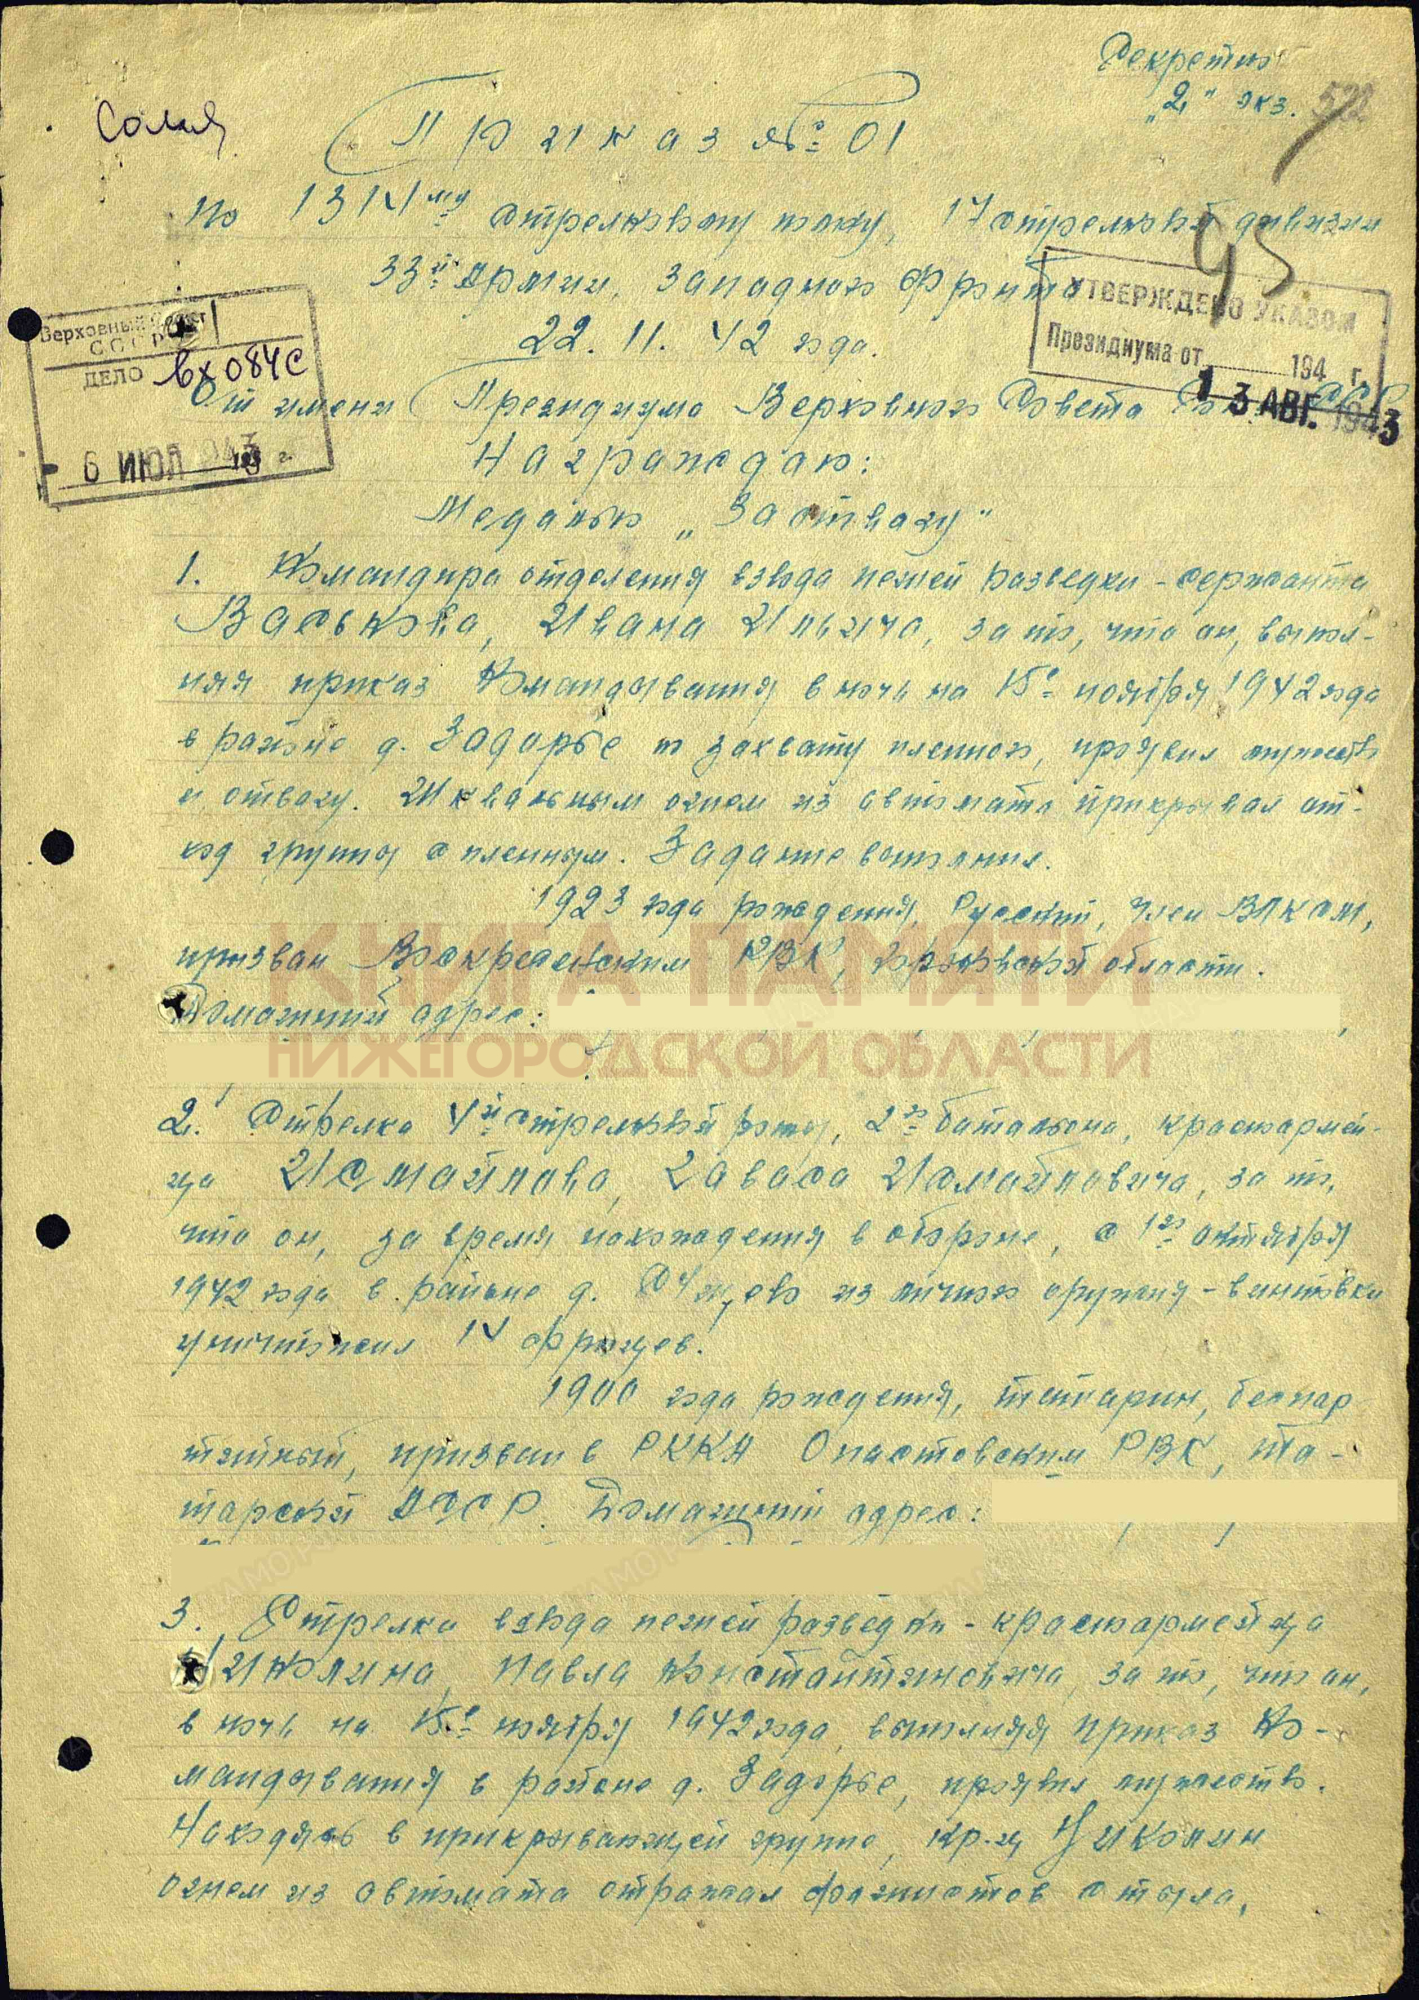 Секретно
"2" экз.
Приказ № 01
По 1314му стрелковому полку, 17 стрелковой дивизии
33й Армии, Западного Фронта
УТВЕРЖДЕНО УКАЗОМ
Президиума от 194 г.
13 АВГ. 1943
22.11.42 года.
Верховный Совет
СССР
ДЕЛО вх 084с
6 ИЮЛ 1943 г.
От имени Президиума Верховного Совета Союза ССР
Награждаю:
Медалью "За отвагу"
1. Командира отделения взвода пешей разведки - сержанта
Васькова, Ивана Ильича, за то, что он, выпол-
няя приказ Командывания в ночь на 15е ноября 1942 года
в районе д. Задорье по захвату пленного, проявил мужество
и отвагу. Шквальным огнем из автомата прикрывал от-
ход группы с пленным. Задание выполнил.
1923 года рождения, Русский, член ВЛКСМ,
призван Воскресенским РВК, Горьковской области.
Домашний адрес:
КНИГА ПАМЯТИ
НИЖЕГОРОДСКОЙ ОБЛАСТИ
2. Стрелка 4й стрелковой роты, 2го батальона, красноармей-
ца Исмайлова, Исмайловича, за то,
что он, за время нахождения в обороне, с 1го октября
1942 года в районе д. из личного оружия - винтовки
уничтожил 14 фрицев.
1900 года рождения, татарин, беспар
тийный, призван в РККА Апастовским РВК, Та-
тарской АССР. Домашний адрес:
3. Стрелка взвода пешей разведки - красноармейца
Циколина, Павла Константиновича, за то, что он,
в ночь на 15е ноября 1942 года, выполняя приказ Ко-
мандывания в районе д. Задорье, проявил мужество.
Находясь в прикрывающей группе, кр-ц Циколин
огнем из автомата отражал фашистов с тыла,